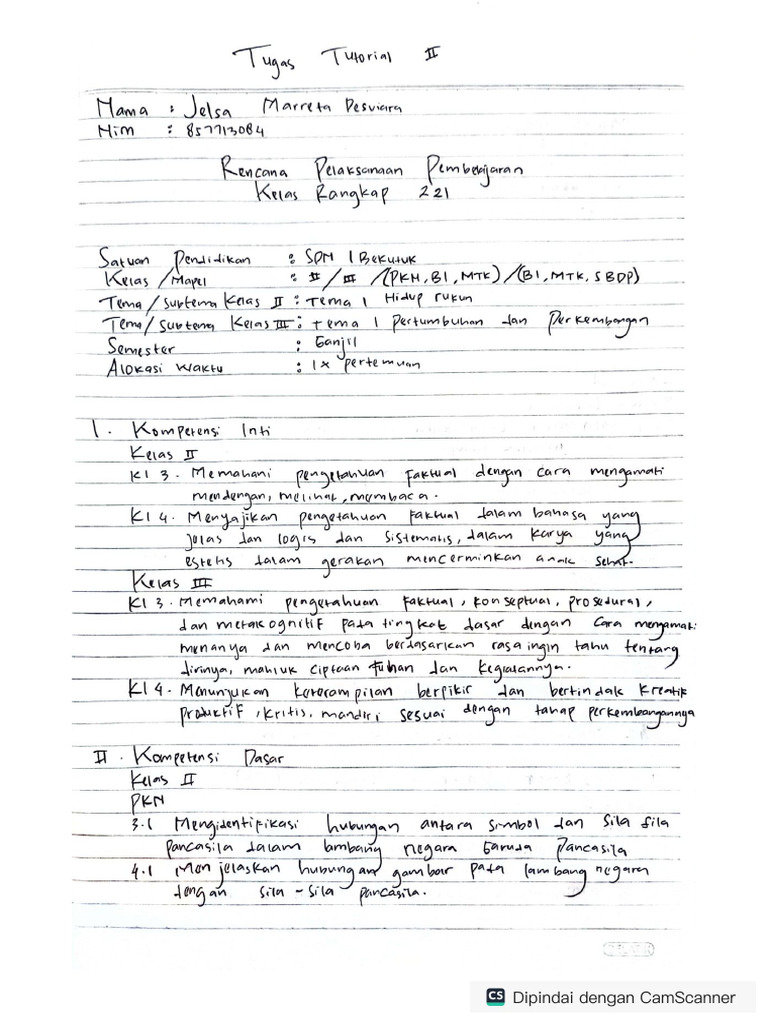 Tugas Tutorial II
Nama : Jelsa Marreta Desviara
Nim : 857713084
Rencana Pelaksanaan Pembelajaran
Kelas Rangkap 221
Satuan Pendidikan : SDN 1 Bekutuk
Kelas /Mapel : II / III /(PKN, BI, MTK) / (BI, MTK, SBDP)
Tema / Subtema Kelas II : Tema 1 Hidup rukun
Tema/ Subtema Kelas III : tema 1 Pertumbuhan dan Perkembangan
Semester : Ganjil
Alokasi Waktu : 1x pertemuan
I. Kompetensi Inti
Kelas II
KI 3. Memahani pengetahuan Faktual dengan cara mengamati
mendengan, melihat, membaca.
KI 4. Menyajikan pengetahuan Faktual dalam bahasa yang
jelas dan logis dan sistematis, dalam karya yang
estetis dalam gerakan mencerminkan anak sehat.
Kelas III
KI 3. Memahami pengetahuan faktual, konseptual, prosedural,
dan metakognitif pada tingkat dasar dengan cara mengamati
menanya dan mencoba berdasarkan rasa ingin tahu tentang
dirinya, mahluk ciptaan Tuhan dan kegiatannya.
KI 4. Menunjukan keterampilan berpikir dan bertindak kreatif
produktif, kritis, mandiri sesuai dengan tahap perkembangannya
II. Kompetensi Dasar
Kelas II
PKN
3.1 Mengidentifikasi hubungan antara simbol dan sila sila
pancasila dalam lambang negara Garuda Pancasila
4.1 Menjelaskan hubungan gambar pada lambang negara
dengan sila - sila pancasila.
CS Dipindai dengan CamScanner